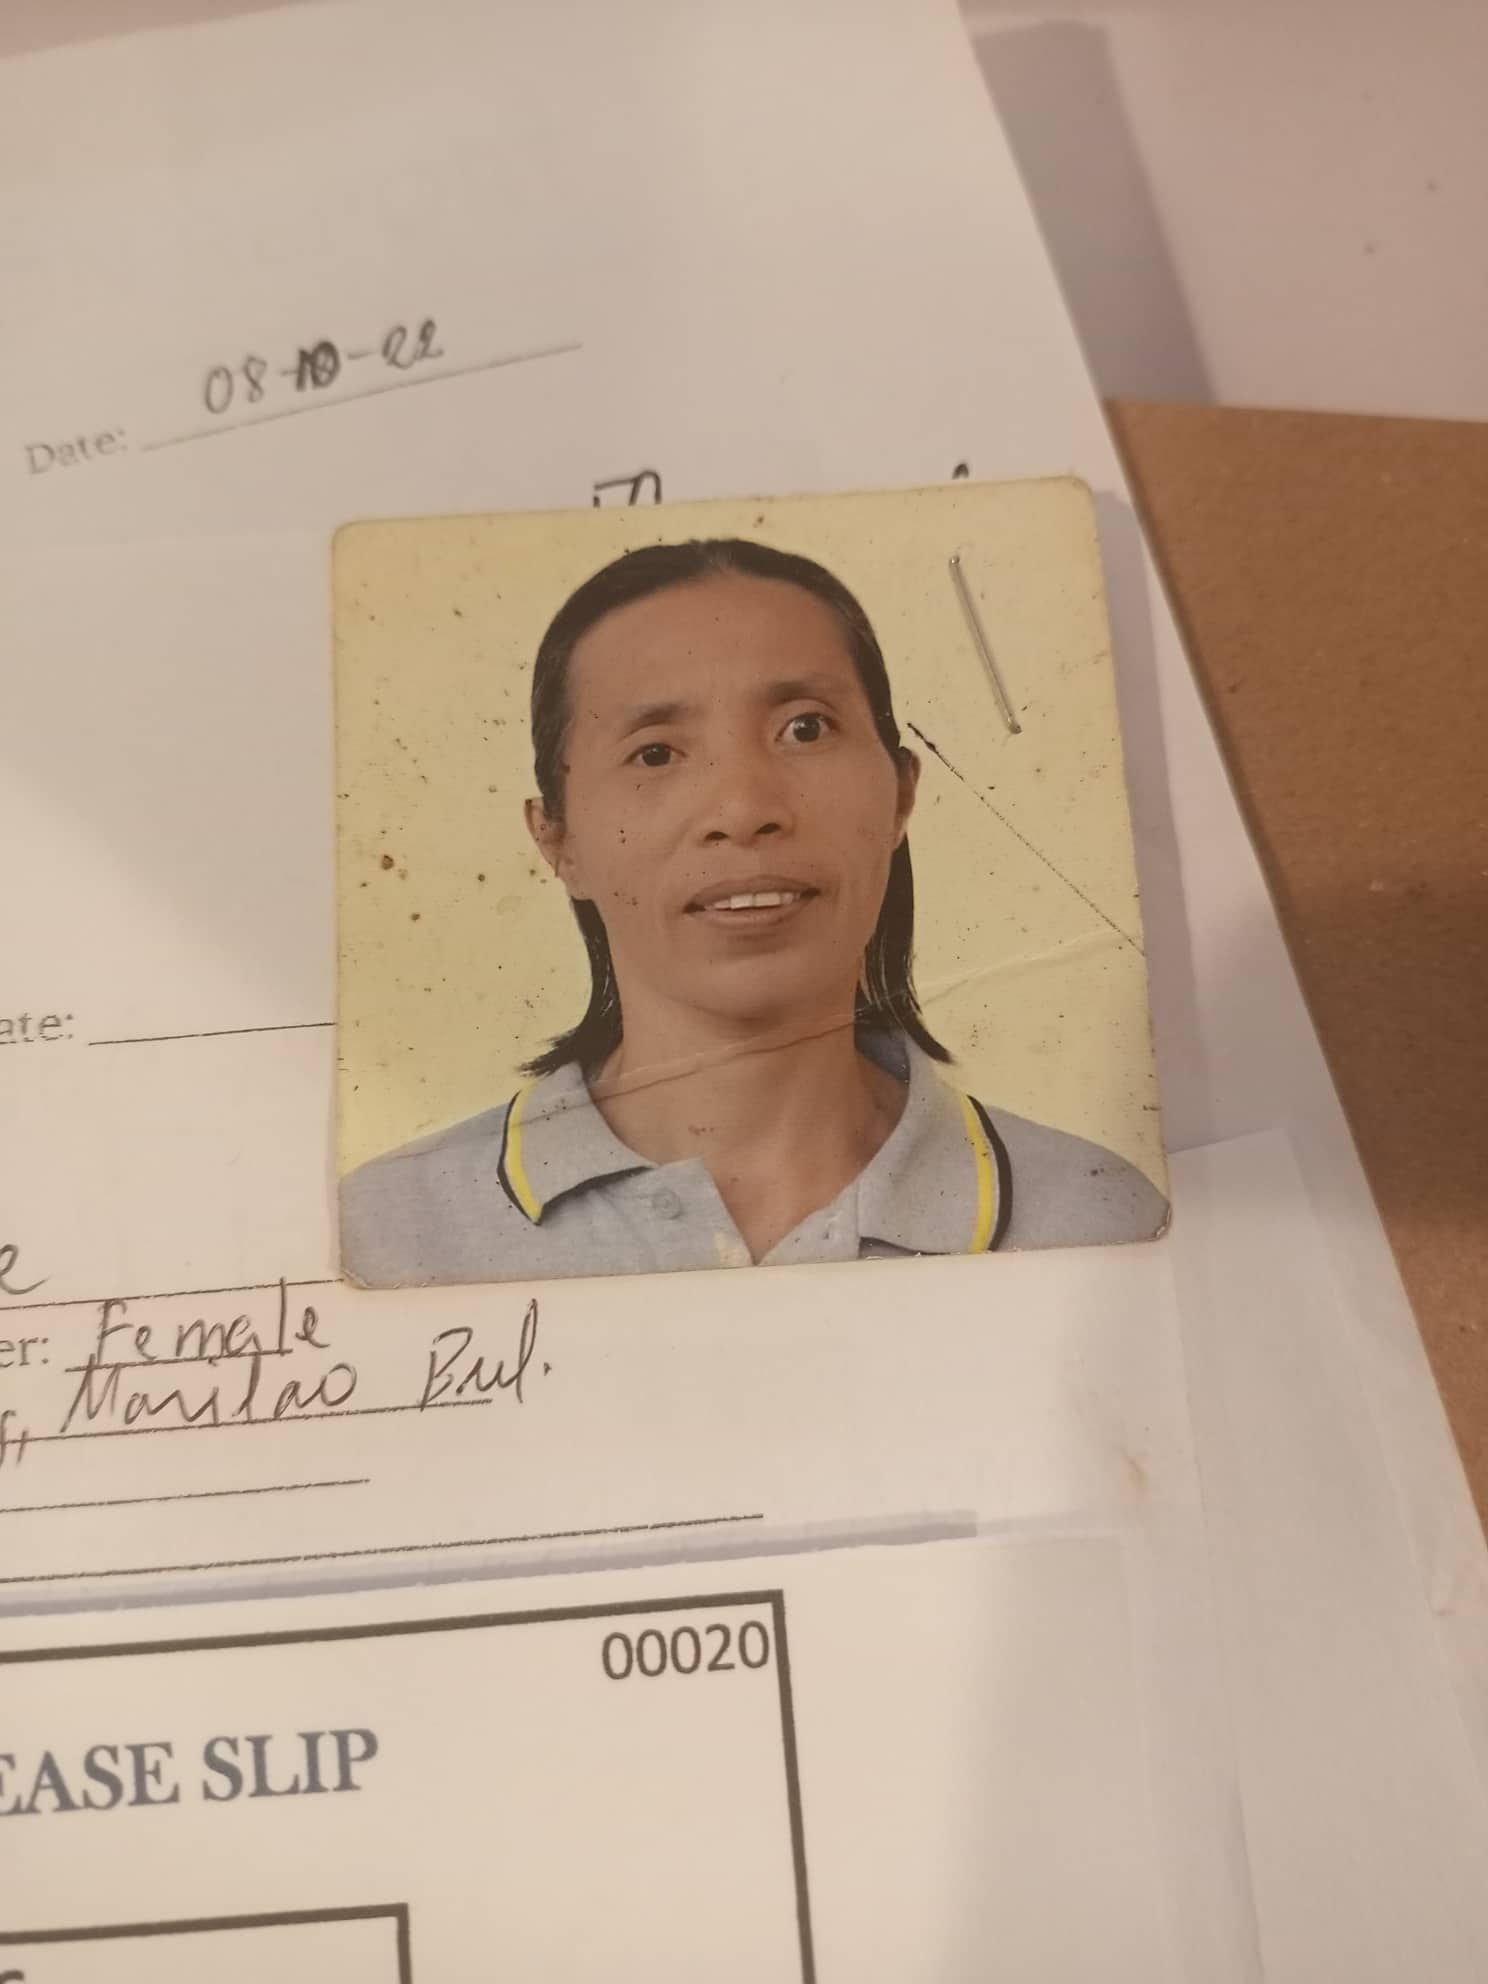 Date: 08-10-22
ate:
er: Female
Marilao Bul.
00020
EASE SLIP